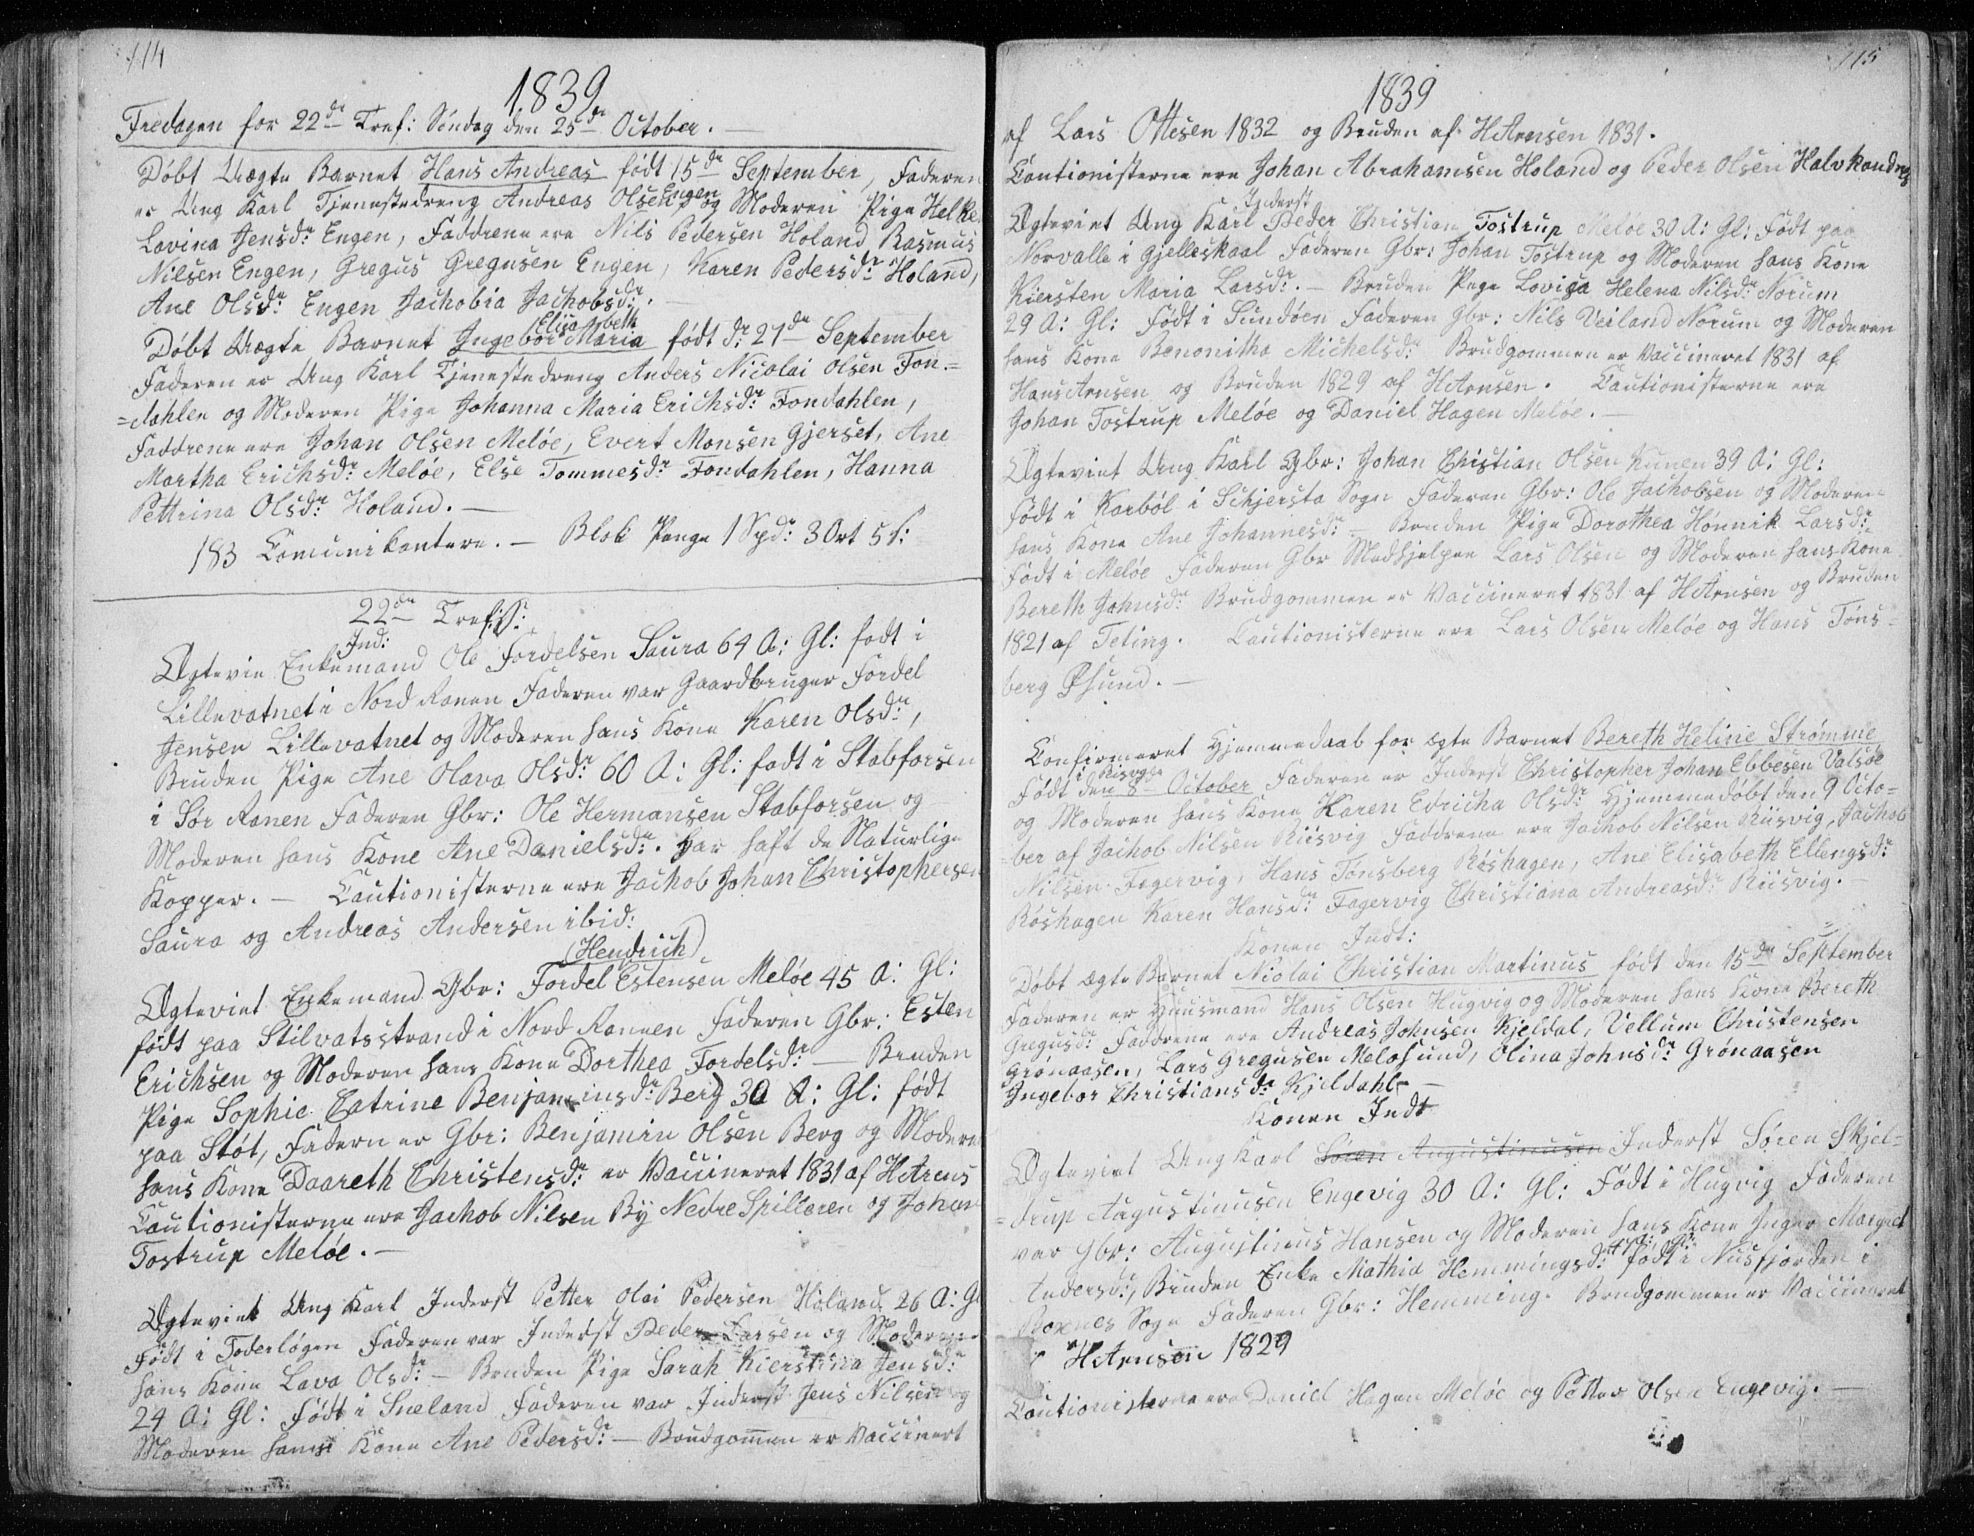 114
1839
Fredagen for 22de Tref: Søndag den 25de October. —
Døbt Uægte Barnet Hans Andreas født 15de September, Faderen
er Ung Karl Tjenestedreng Andreas Olsen Engen og Moderen Pige Helke
Lovina Jensdr: Engen, Faddrene ere Nils Pedersen Holand, Rasmus
Nilsen Engen, Gregus Gregusen Engen, Karen Pedersdr: Holand,
Ane Olsdr: Engen Jachobia Jachobsdr. —
Døbt Uægte Barnet Ingebor Elisabeth Maria født d: 27de September
Faderen er Ung Karl Tjenestedreng Anders Nicolai Olsen Fon-
=dahlen og Moderen Pige Johanna Maria Erichsdr: Fondahlen,
Faddrene ere Johan Olsen Meløe, Evert Monsen Gjerset, Ane
Martha Erichsdr: Meløe, Else Tommesdr: Fondahlen, Hanna
Pettrina Olsdr: Holand. —
183 Comunikantere. — Blok Penge 1 Spdr: 3 Ort 5 s:
22de Tref: S:
Ægtevie Enkemand Ind: Ole Fordelsen Saura 64 A: Gl: født i
Lillevatnet i Nord Ranen Faderen var Gaardbruger Fordel
Jensen Lillevatnet og Moderen hans Kone Karen Olsdr:,
Bruden Pige Ane Olava Olsdr: 60 A: Gl: født i Stabforsen
i Sør Ranen Faderen Gbr: Ole Hermansen Stabforsen og
Moderen hans Kone Ane Danielsdr. Har haft de Naturlige
Kopper. — Cautionisterne ere Jachob Johan Christophersen
Saura og Andreas Andersen ibid:
(Hendrich)
Ægteviet Enkemand Gbr: Fordel Estensen Meløe 45 A: Gl:
født paa Stilvatsstrand i Nord Rannen Faderen Gbr: Esten
Erichsen og Moderen hans Kone Dorthea Fordelsdr: — Bruden
Pige Sophie Catrine Benjaminsdr: Berg 30 A: Gl: født
paa Støt, Fadern er Gbr: Benjamin Olsen Berg og Moderen
hans Kone Daareth Christensdr: er Vaccineret 1831 af H Arens
Cautionisterne ere Jachob Nilsen By Nedre Spilleren og Johan
Tostrup Meløe. —
Ægteviet Ung Karl Inderst Petter Olai Pedersen Holand 26 A: Gl
Født i Foderløgen Faderen var Inderst Peder Larsen og Moderen
hans Kone Lava Olsdr: — Bruden Pige Sarah Kierstina Jensdr:
24 A: Gl: Født i Sneland Faderen var Inderst Jens Nilsen og
Moderen hans Kone Ane Pedersdr: — Brudgommen er Vaccinert
115
1839
af Lars Ottesen 1832 og Bruden af H Arensen 1831.
Cautionisterne ere Johan Abrahamsen Holand og Peder Olsen Halvkandnes
Ægteviet Ung Karl Inderst Peder Christian Tostrup Meløe 30 A: Gl: Født paa
Norvalle i Gjelleskaal Faderen Gbr: Johan Tostrup og Moderen hans Kone
Kiersten Maria Larsdr. — Bruden Pige Lovisa Helena Nilsdr: Norum
29 A: Gl: Født i Sundøen Faderen Gbr: Nils Veiland Norum og Moderen
hans Kone Benonitha Michelsdr: Brudgommen er Vaccineret 1831 af
Hans Arnsen og Bruden 1829 af H Arensen. Cautionisterne ere
Johan Tostrup Meløe og Daniel Hagen Meløe. —
Ægteviet Ung Karl Gbr: Johan Chistian Olsen Kunen 39 A: Gl:
Født i Karbøl i Schjersta Sogn Faderen Gbr: Ole Jachobsen og Moderen
hans Kone Ane Johannesdr: — Bruden Pige Dorothea Hønnik Larsdr:
Født i Meløe Faderen Gbr Medhjelper Lars Olsen og Moderen hans Kone
Bereth Johnsdr: Brudgommen er Vaccineret 1831 af H Arnsen og Bruden
1821 af Teting. Cautionisterne ere Lars Olsen Meløe og Hans Tøns-
berg Øsund. —
Confirmeret Hjemmedaab for ægte Barnet Bereth Heline Strømme
Født i Risvig den 8de October Faderen er Inderst Christopher Johan Ebbesen Valsøe
og Moderen hans Kone Karen Edricha Olsdr: Hjemmedøbt den 9 Octo-
=ber af Jachob Nilsen Riisvig Faddrene ere Jachob Nilsen Riisvig, Jachob
Nilsen Fagervig, Hans Tønsberg Røshagen, Ane Elisabeth Ellengsdr:
Røshagen Karen Hansdr: Fagervig Christiana Andreasdr: Riisvig. —
Konen Indt:
Døbt ægte Barnet Niolai Christian Martinus født den 15de September
Faderen er Huusmand Hans Olsen Hugvig og Moderen hans Kone Bereth
Gregusdr: Faddrene ere Andreas Johnsen Kjeldal, Vellum Christensen
Grønaasen, Lars Gregusen Meløsund, Olina Johnsdr: Grønaasen
Ingebor Christiansdr: Kjeldahl —
Konen Indt
Ægteviet Ung Karl Søren Augustinusen Inderst Søren Skjel-
=drup Augustinusen Engevig 30 A: Gl: Født i Hugvig Faderen
var Gbr: Augustinus Hansen og Moderen hans Kone Inger Margret
Andersdr:, Bruden Enke Mathia Hemmingsdr: 47 A: Gl: født i Nusfjorden i
Boxnes Sogn Faderen Gbr: Hemming. Brudgommen er Vaccineret
H Arnsen 1829
Cautionisterne ere Daniel Hagen Meløe og Petter Olsen Engevig. —